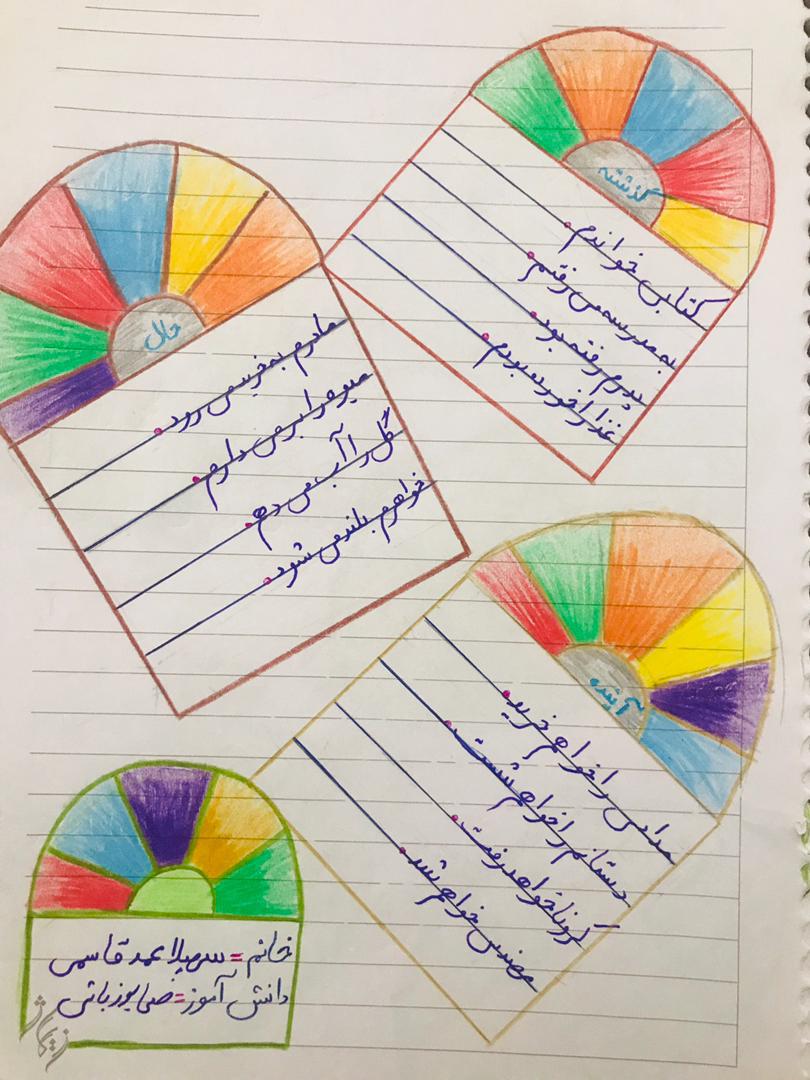 گذشته
کتابی خواندم.
به مدرسه می رفتم.
پدرم رفته بود.
غذا خورده بودم.
حال
مادرم به خرید می رود.
میوه را برمی دارم.
گل را آب می دهم.
خواهرم بلند می شود.
آینده
مدادی را خواهم خرید.
دستانم را خواهم شست.
کرونا خواهد رفت.
مهندس خواهم شد.
خانم = سهیلا عمد قاسمی
دانش آموز =